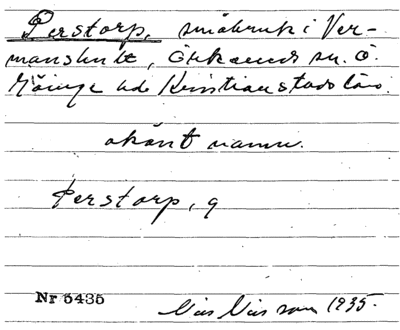 Perstorp, småbruk i Ver-
manshult, Örkeneds sn. Ö.
Göinge hd Kristianstads län.
okänt namn.
Perstorp, g
Nr 5435
Nils Nilsson 1935.